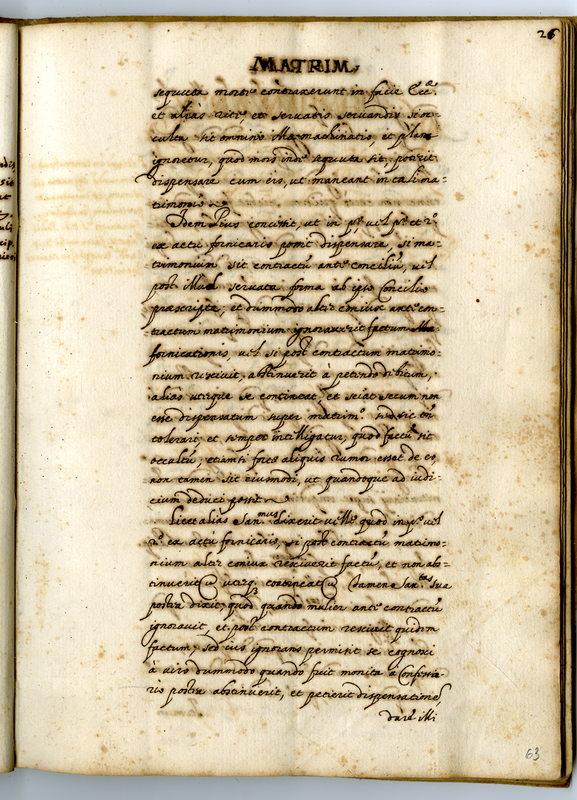 26
MATRIM.
sequuta morte contraxerunt in facie Eccᵉ.
et alias ritè, et servatis servandis si oc=
culta sit omnino machinatio, et plane
ignoretur, quod mors inde sequuta sit, poterit
dispensare cum eis, ut maneant in tali ma=
trimonio
Idem Pius concessit, ut in pº. vel pº. et 2º.
ex actu fornicario possit dispensare, si ma=
trimonium sit contractũ ante conciliũ, vel
post illud servata forma ab ipso Concilio
praescripta, et dummodo alter coniux ante con=
tractum matrimonium ignoraverit factum
fornicationis, vel si post contractum matrimo=
nium rescivit, abstinuerit à petendo debitum,
aliàs uterque se contineat, et sciat secum non
esse dispensatum super matrimº. sed sic eũ
tolerari, et semper intelligatur, quod factũ sit
occultũ, etiamsi forte aliquis rumor esset de eo,
non tamen sic eiusmodi, ut quandoque ad iudi=
cium deduci possit
Licet aliàs Sanᵐᵘˢ dixerit velle quod in pº. vel
2º. ex actu fornicario, si post contractũ matrimo=
nium alter coniux resciverit factũ, et non abs=
tinuerit uterq; contineat tamen Sanᵗᵃˢ Sua
postea dixit, quod quando mulier ante contractũ
ignoravit, et post contractum rescivit quidem
factum, sed ius ignorans permisit se cognosci
à viro dummodo quando fuit monita à Confessa=
rio postea abstinuerit, et petierit dispensationẽ,
dari illi
63